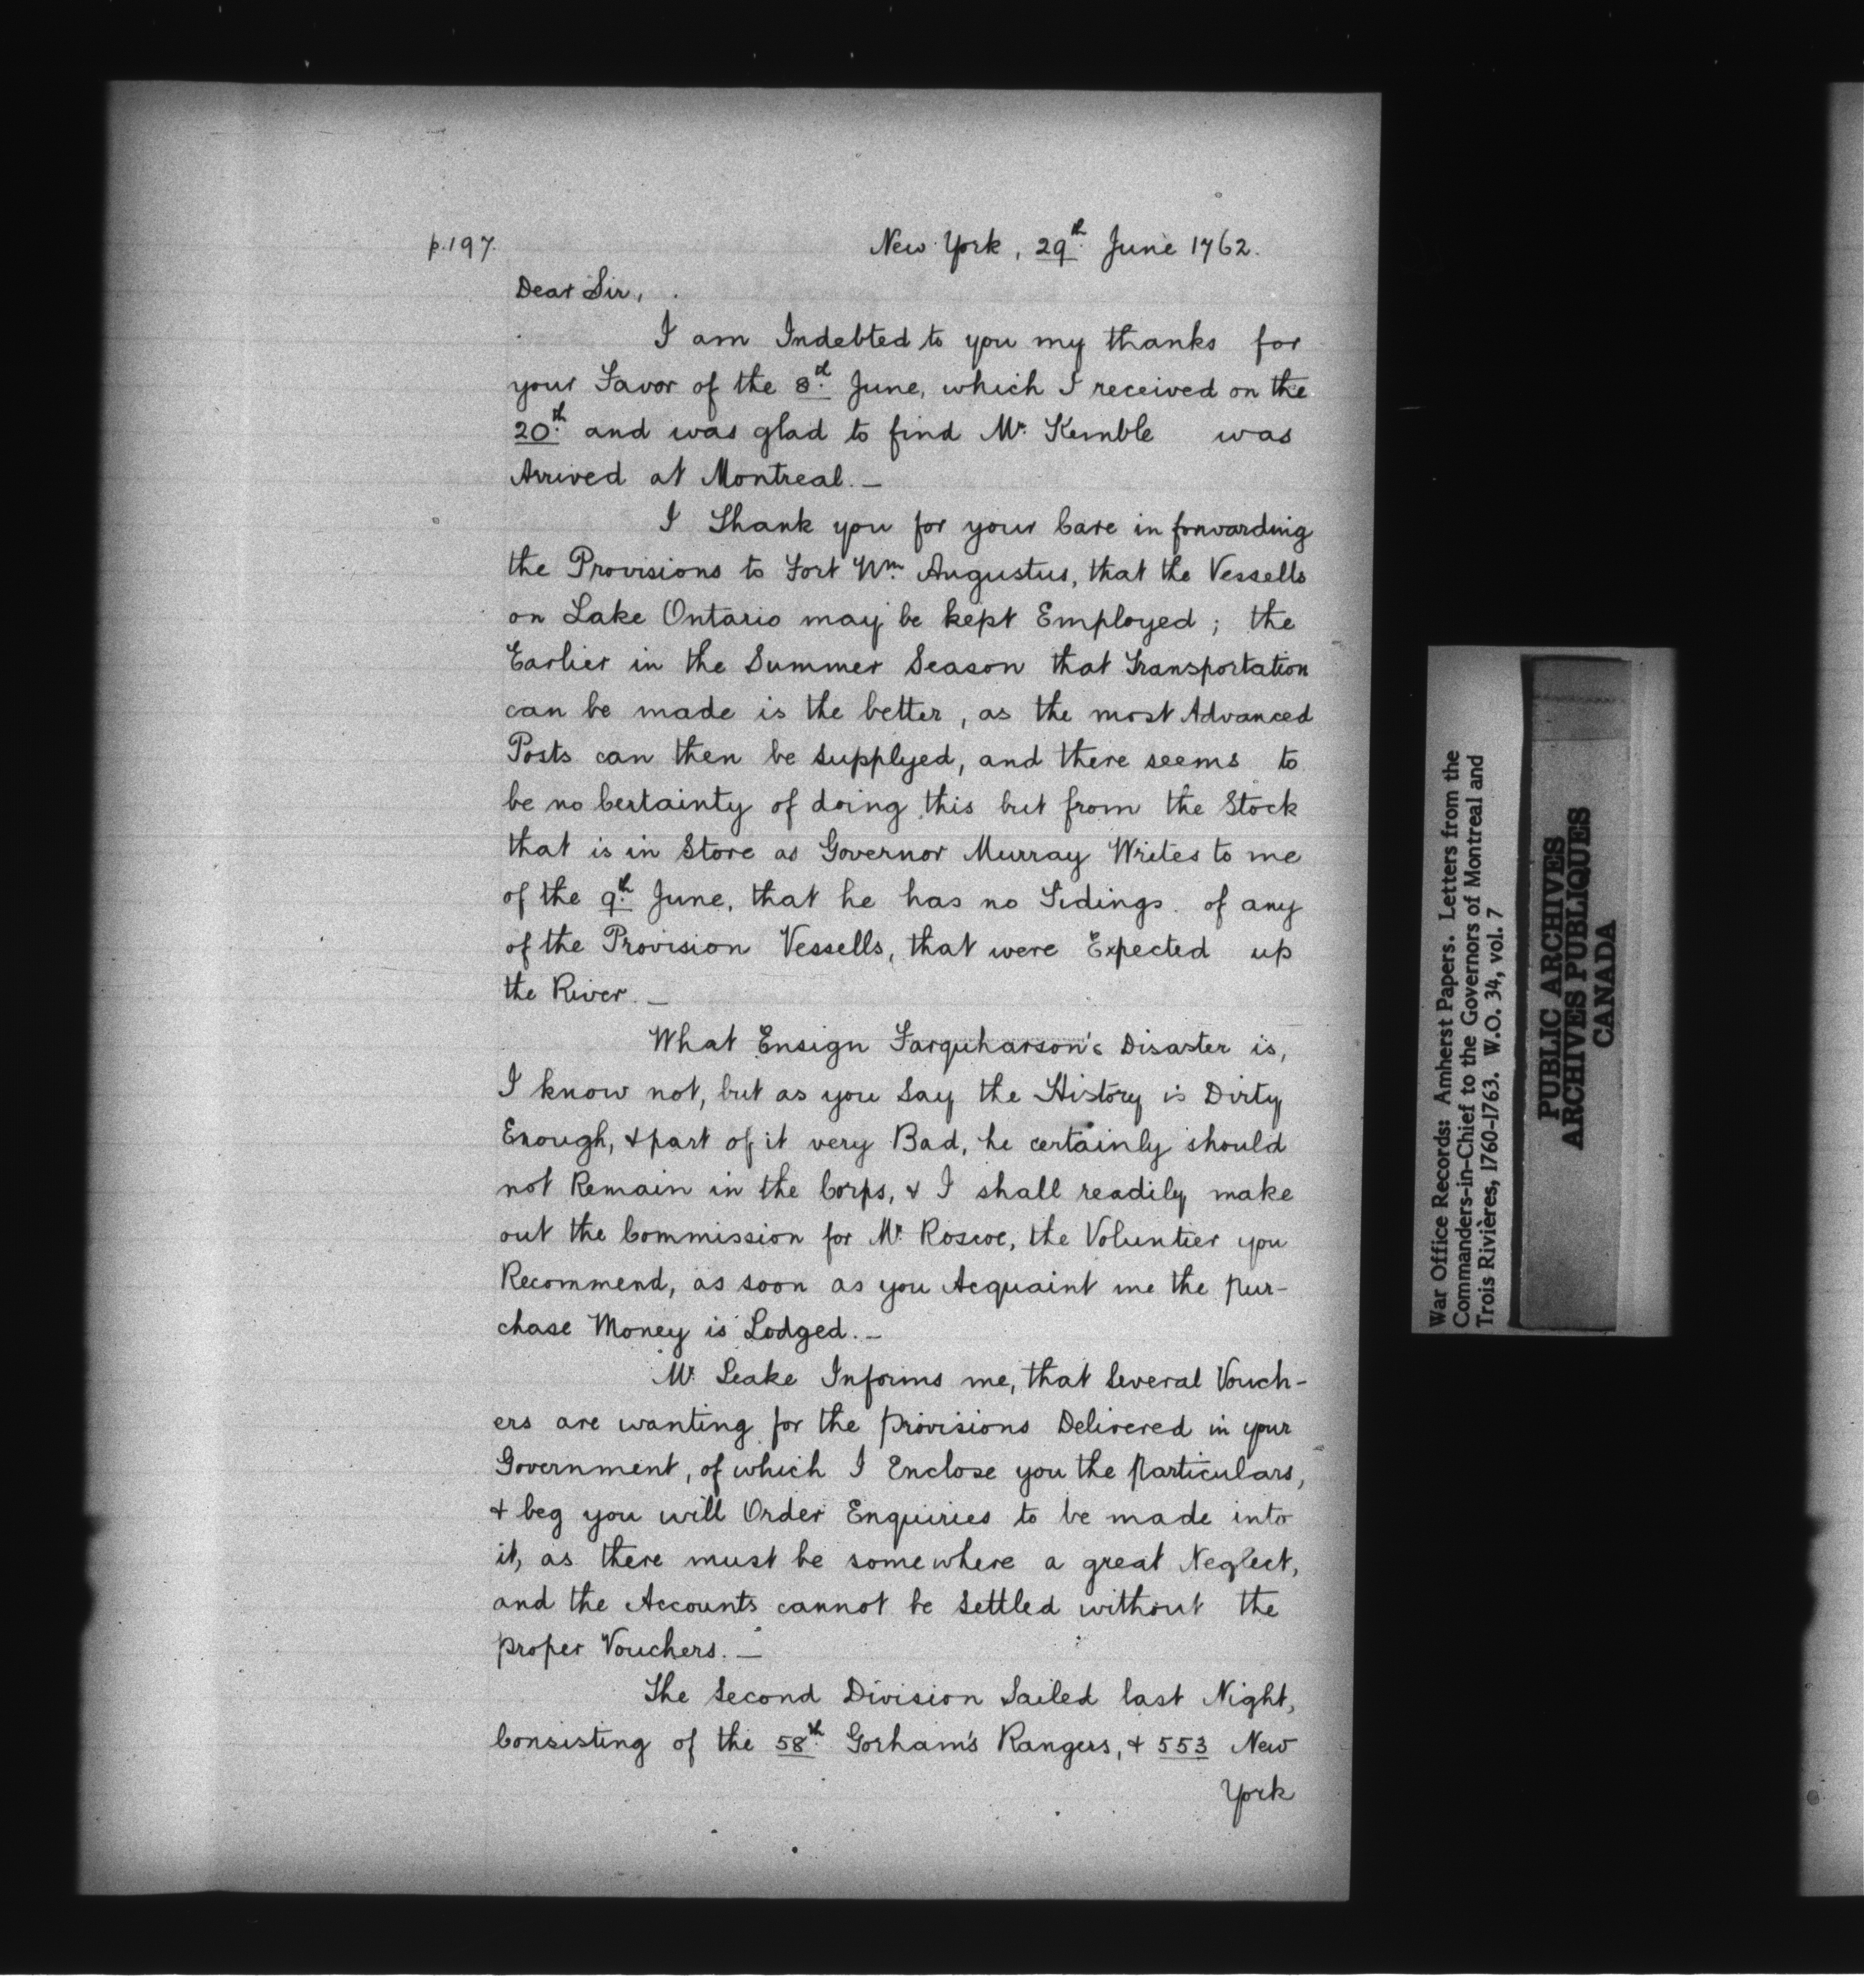 p.197.
New York, 29th June 1762.
Dear Sir,
I am Indebted to you my thanks for
your Favor of the 8th June, which I received on the
20th and was glad to find Mr. Kemble was
Arrived at Montreal. —
I Thank you for your Care in forwarding
the Provisions to Fort Wm. Augustus, that the Vessells
on Lake Ontario may be kept Employed; the
Earlier in the Summer Season that Transportation
can be made is the better, as the most Advanced
Posts can then be supplyed, and there seems to
be no Certainty of doing this but from the Stock
that is in Store as Governor Murray Writes to me
of the 9th June, that he has no Tidings of any
of the Provision Vessells, that were Expected up
the River. —
What Ensign Farquharson's Disaster is,
I know not, but as you Say the History is Dirty
Enough, & part of it very Bad, he certainly should
not Remain in the Corps, & I shall readily make
out the Commission for Mr. Roscoe, the Voluntier you
Recommend, as soon as you Acquaint me the pur-
chase Money is Lodged. —
Mr. Leake Informs me, that Several Vouch-
ers are wanting for the provisions Delivered in your
Government, of which I Enclose you the particulars,
& beg you will Order Enquiries to be made into
it, as there must be somewhere a great Neglect,
and the Accounts cannot be Settled without the
proper Vouchers. —
The Second Division Sailed last Night,
Consisting of the 58th Gorham's Rangers, & 553 New
York
War Office Records: Amherst Papers. Letters from the
Commanders-in-Chief to the Governors of Montreal and
Trois Rivières, 1760-1763. W.O. 34, vol. 7
PUBLIC ARCHIVES
ARCHIVES PUBLIQUES
CANADA